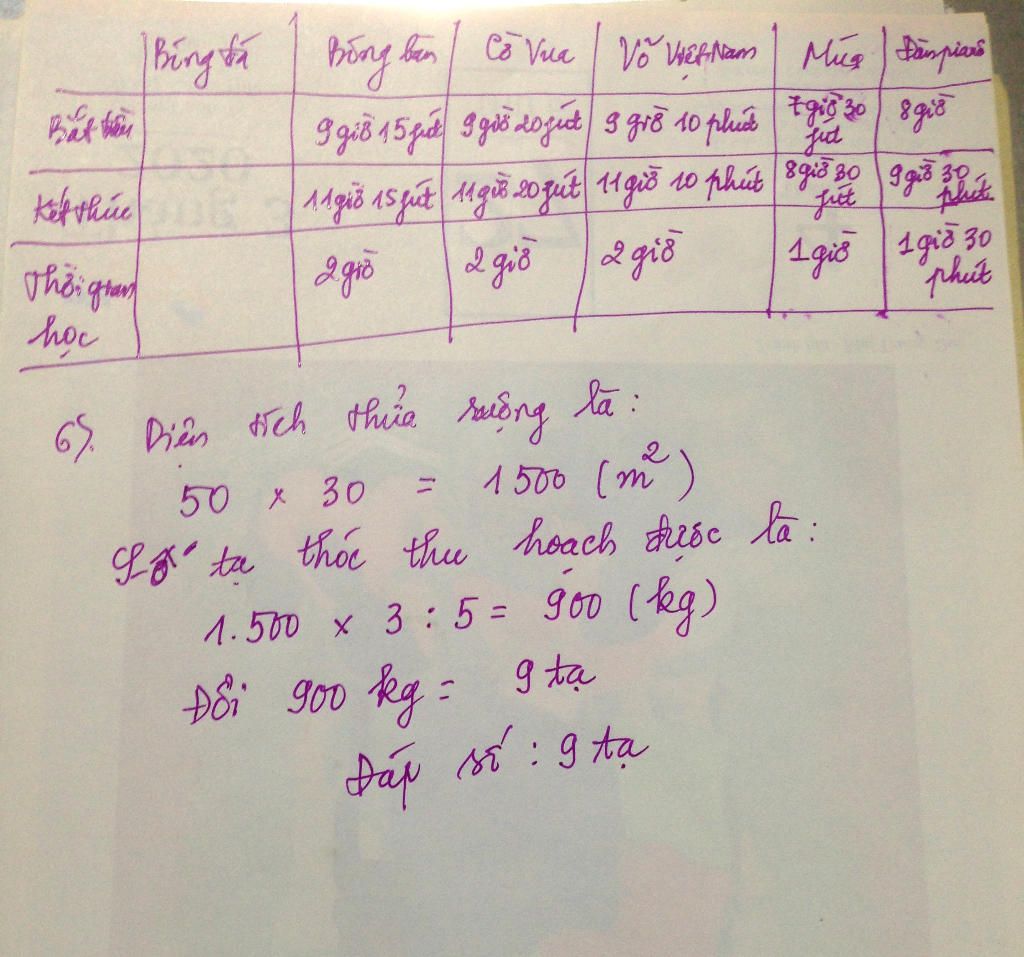 Bóng đá Bóng bàn Cờ Vua Võ Việt Nam Múa Đàn piano
Bắt đầu 9 giờ 15 fút 9 giờ 20 fút 9 giờ 10 phút 7 giờ 30 fút 8 giờ
Kết thúc 11 giờ 15 fút 11 giờ 20 fút 11 giờ 10 phút 8 giờ 30 fút 9 giờ 30 phút
Thời gian học 2 giờ 2 giờ 2 giờ 1 giờ 1 giờ 30 phút
6). Diện tích thửa ruộng là:
50 x 30 = 1500 (m²)
Số tạ thóc thu hoạch được là:
1.500 x 3 : 5 = 900 (kg)
Đổi 900 kg = 9 tạ
Đáp số : 9 tạ